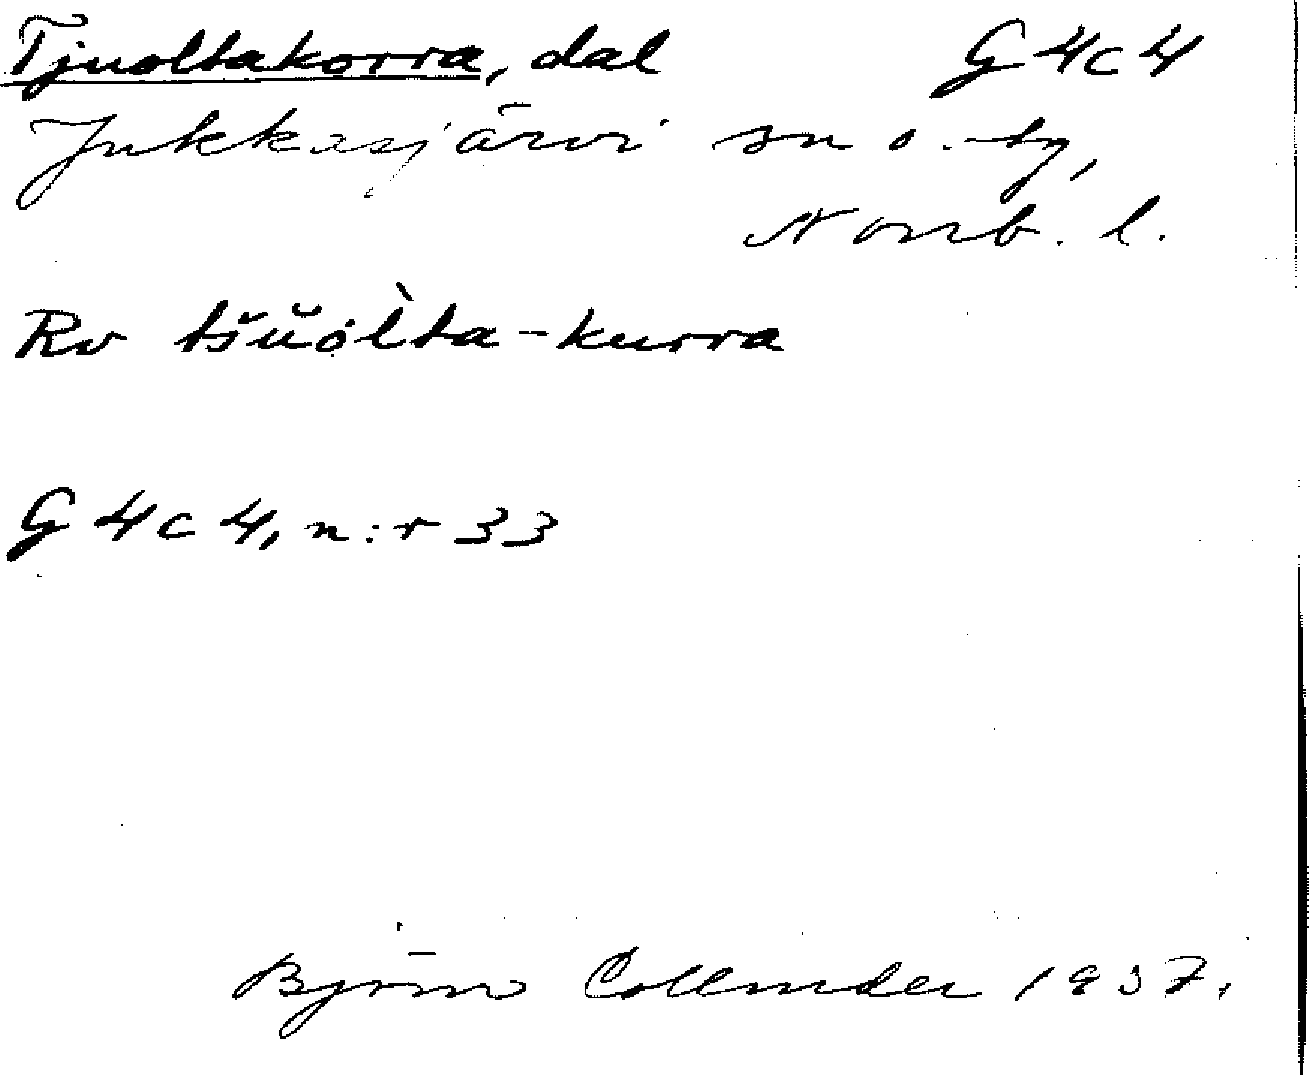 Tjuoltakorra, dal G 4 c 4
Jukkasjärvi sn o. -by,
Norrb. l.
Rv tšŭòl̀ta-kurra
G 4 c 4, n:r 33
Björn Collinder 1937.